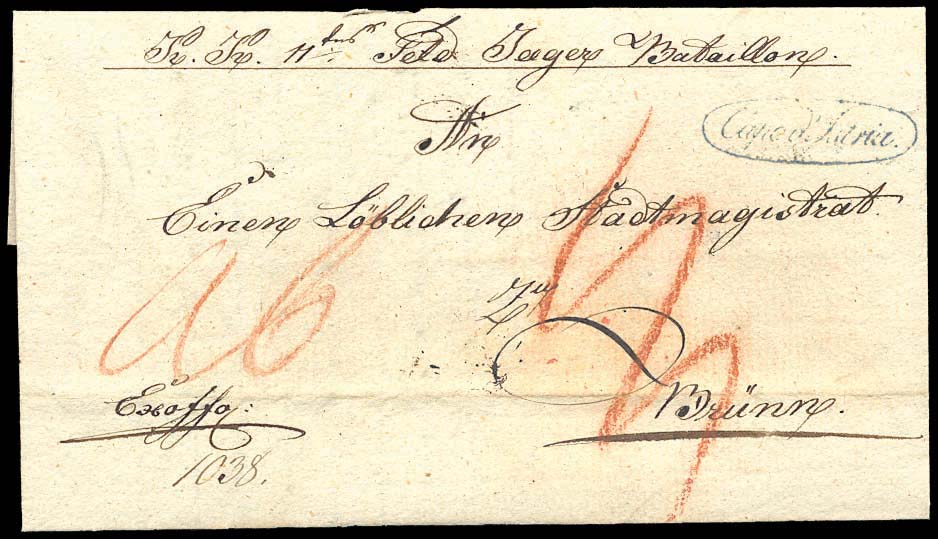 K. K. 11tes Feld Jager Bataillon.
An
Capo d'Istria.
Einen Löblichen Stadtmagistrat
Zu
Brünn.
Exoffo:
1038.